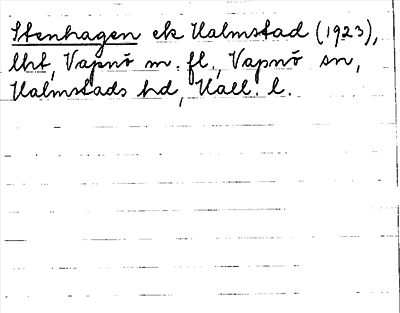 Stenhagen ek Halmstad (1923),
lht, Vapnö m. fl., Vapnö sn,
Halmstads hd, Hall. l.